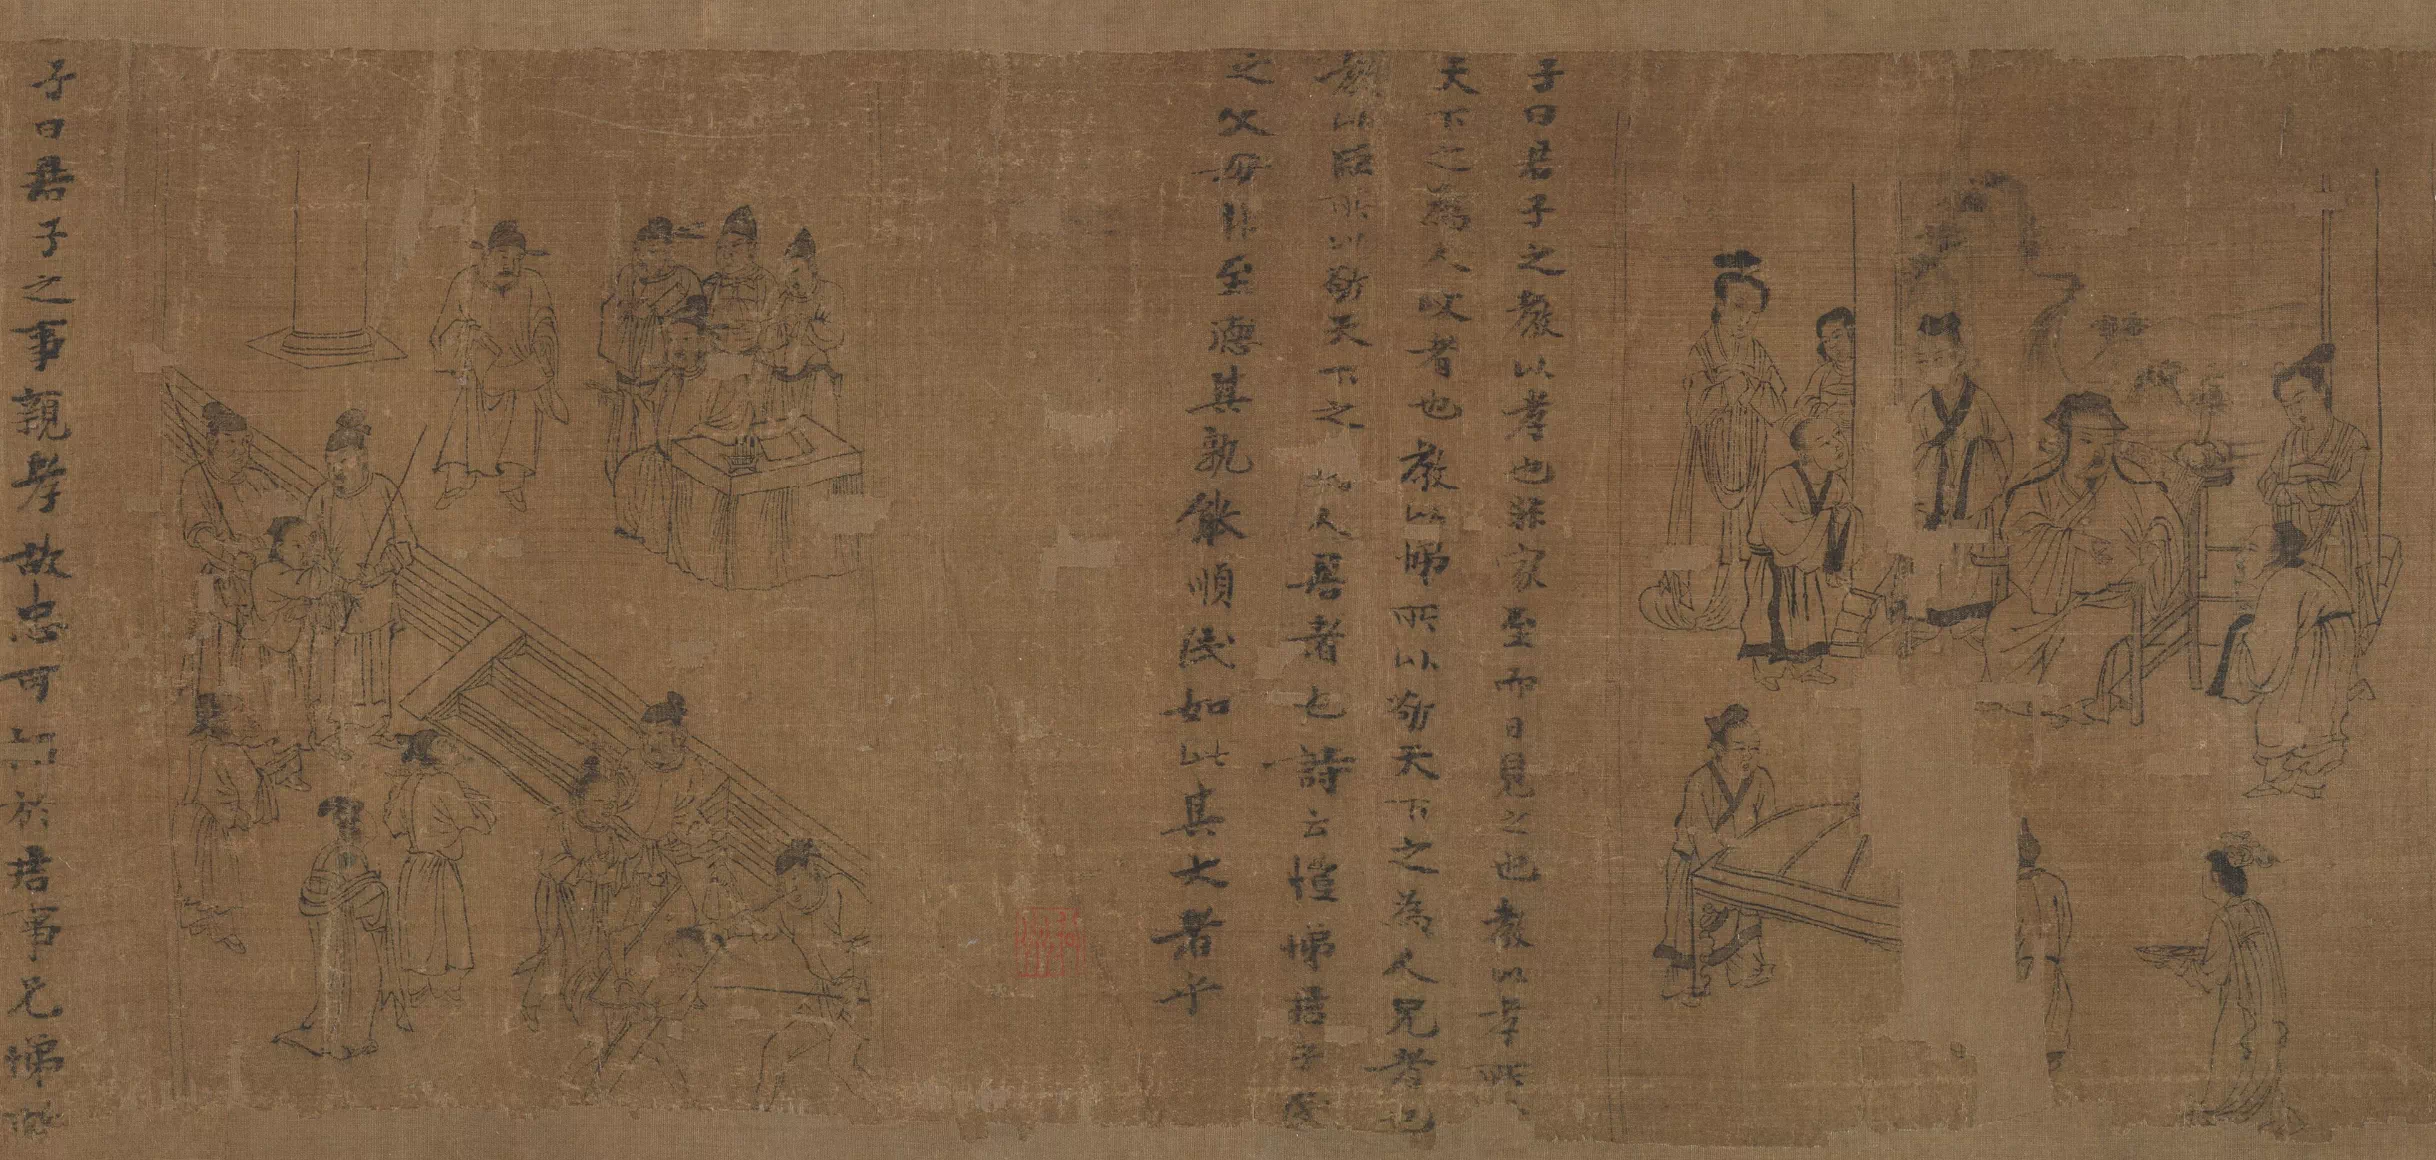 子曰君子之教以孝也非家至而日見之也教以孝所
天下之為人父者也教以悌所以敬天下之為人兄者也
教以臣所以敬天下之為人君者也詩云愷悌君子民
之父母非至德其孰能順民如此其大者乎
子曰君子之事親孝故忠可移於君事兄悌故